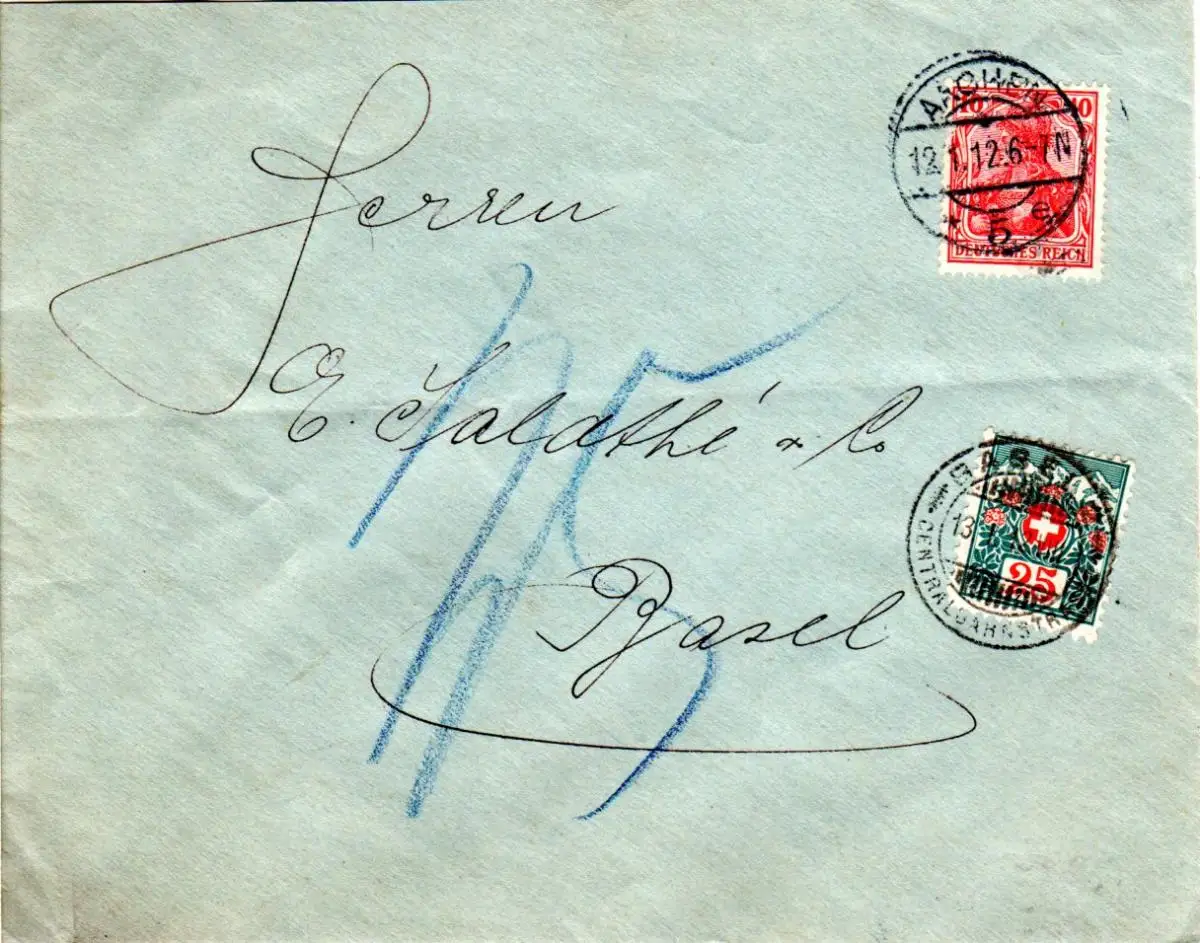 AACHEN
12.1.12.6-7N
* 5 e
10 10
DEUTSCHES REICH
Herren
E. Saladthé & Co
Basel
25
BASEL
13
CENTRALBAHNSTR
25